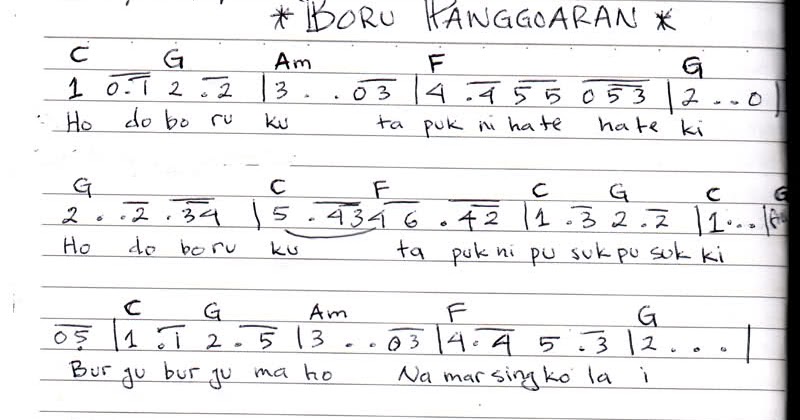 * BORU PANGGOARAN *
C G Am F G
1 0.1 2 .2 | 3 . . 03 | 4 .4 55 053 | 2 . . 0 |
Ho do bo ru ku ta puk ni hate hate ki
G C F C G C G
2 . .2 .34 | 5 .434 6 .42 | 1 .3 2 .2 | 1 . . . |
Ho do boru ku ta puk ni pu suk pu suk ki
C G Am F G
05 | 1 .1 2 .5 | 3 . . 03 | 4 .4 5 .3 | 2 . . . |
Bur ju bur ju ma ho Na mar sing ko la i